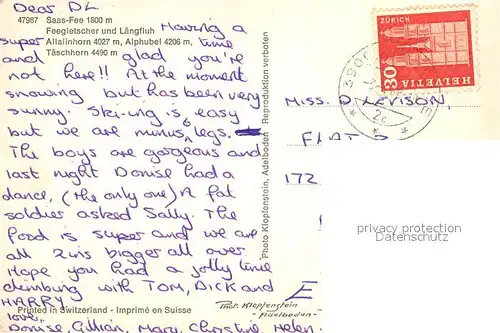 Dear DL
47987 Saas-Fee 1800 m
Feegletscher und Längfluh
Allalinhorn 4027 m, Alphubel 4206 m,
Täschhorn 4490 m
Having a
super time
and glad you're
not here!! At the moment
snowing but has been very
sunny. Ski-ing is easy
but we are minus legs.
The boys are gorgeous and
last night Denise had a
dance, (the only one) A fat
soldier asked Sally. The
food is super and we are
all 2ins bigger all over
Hope you had a jolly time
climbing with TOM, DICK and
HARRY
love,
Denise, Gillian, Mary, Christine, Helen
Printed in Switzerland - Imprimé en Suisse
Photo Klopfenstein, Adelboden Reproduktion verboten
Phot. Klopfenstein
- Adelboden -
ZÜRICH
HELVETIA
30
3906
2c
MISS. D. LEVISON,
FLAT
172
privacy protection
Datenschutz